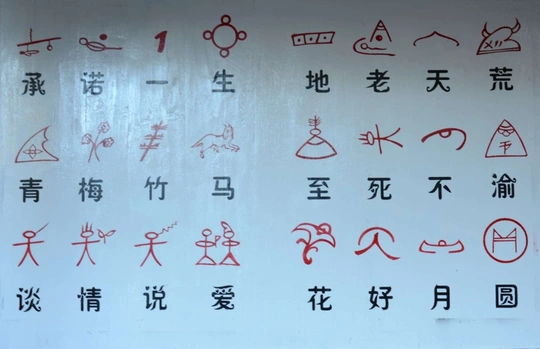 承诺一生 地老天荒
青梅竹马 至死不渝
谈情说爱 花好月圆